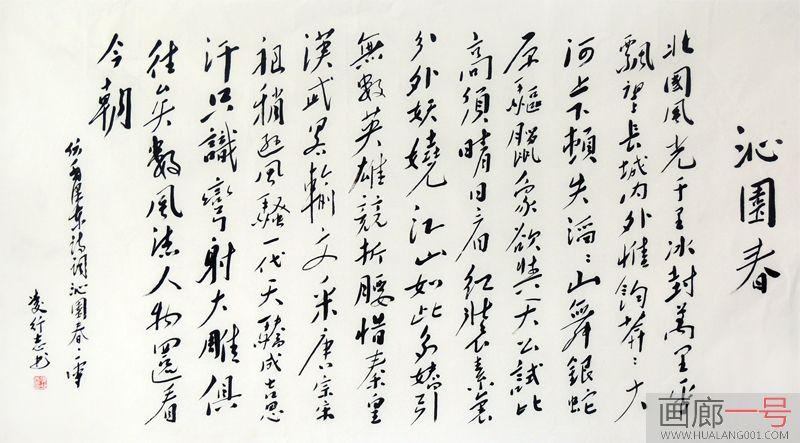 沁園春
北國風光千里冰封萬里雪
飄望長城内外惟餘莽〻大
河上下頓失滔〻山舞銀蛇
原驅臘象欲與天公試比
高須晴日看紅裝素裹
分外妖嬈江山如此多嬌引
無數英雄競折腰惜秦皇
漢武畧輸文采唐宗宋
祖稍遜風騷一代天驕成吉思
汗只識彎射大雕俱
往矣數風流人物還看
今朝
毛澤東詩詞沁園春〻雪
凌行志书
画廊一号
WWW.HUALANG001.COM